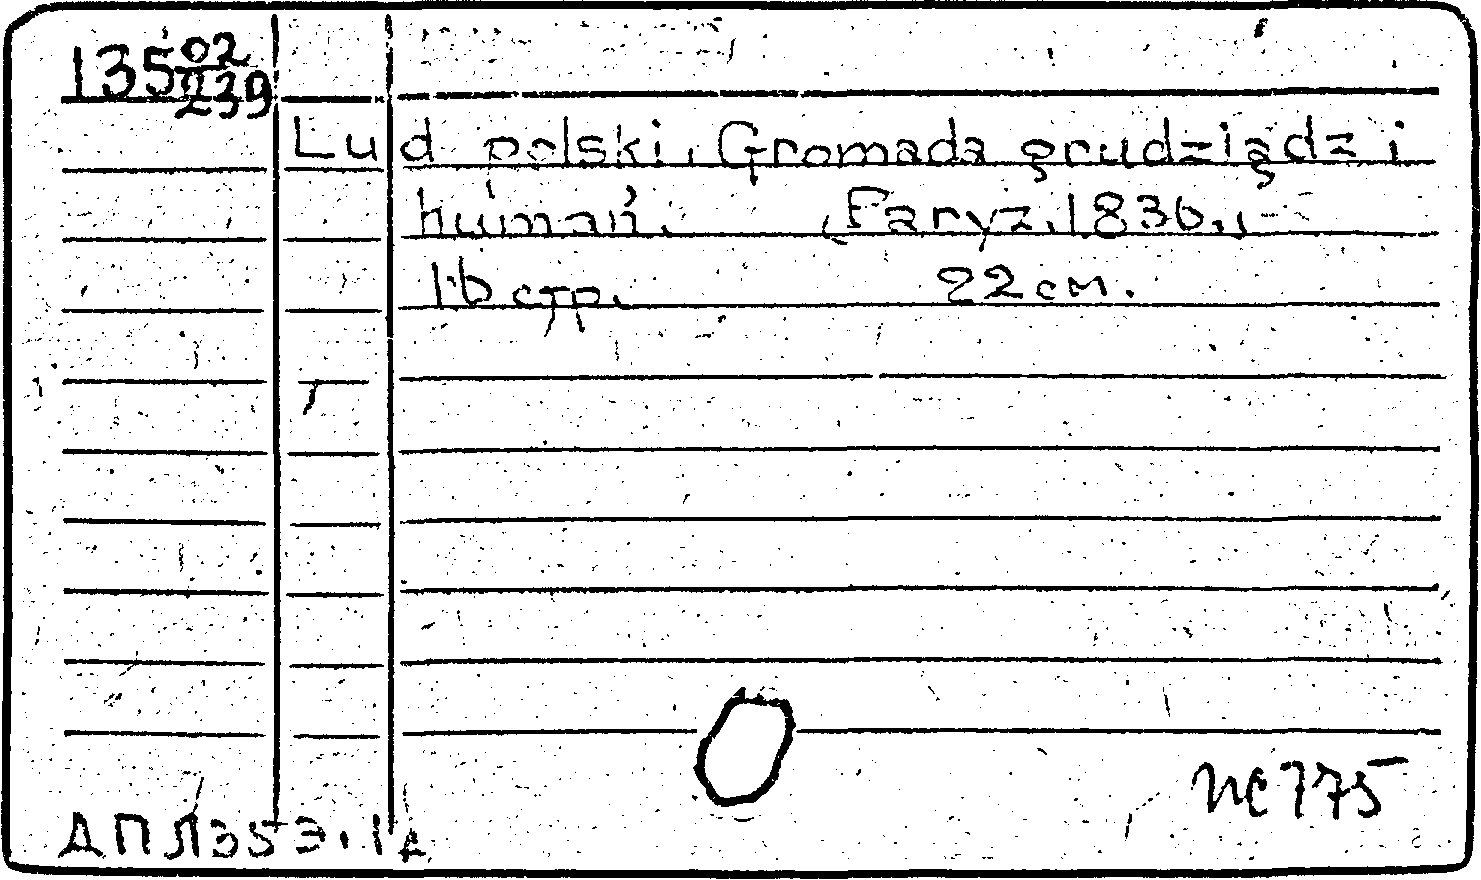 135 02/239
Lud polski. Gromada grudziądz i
humań. (Paryż. 1836.)
16 стр. 22 см.
пс 775